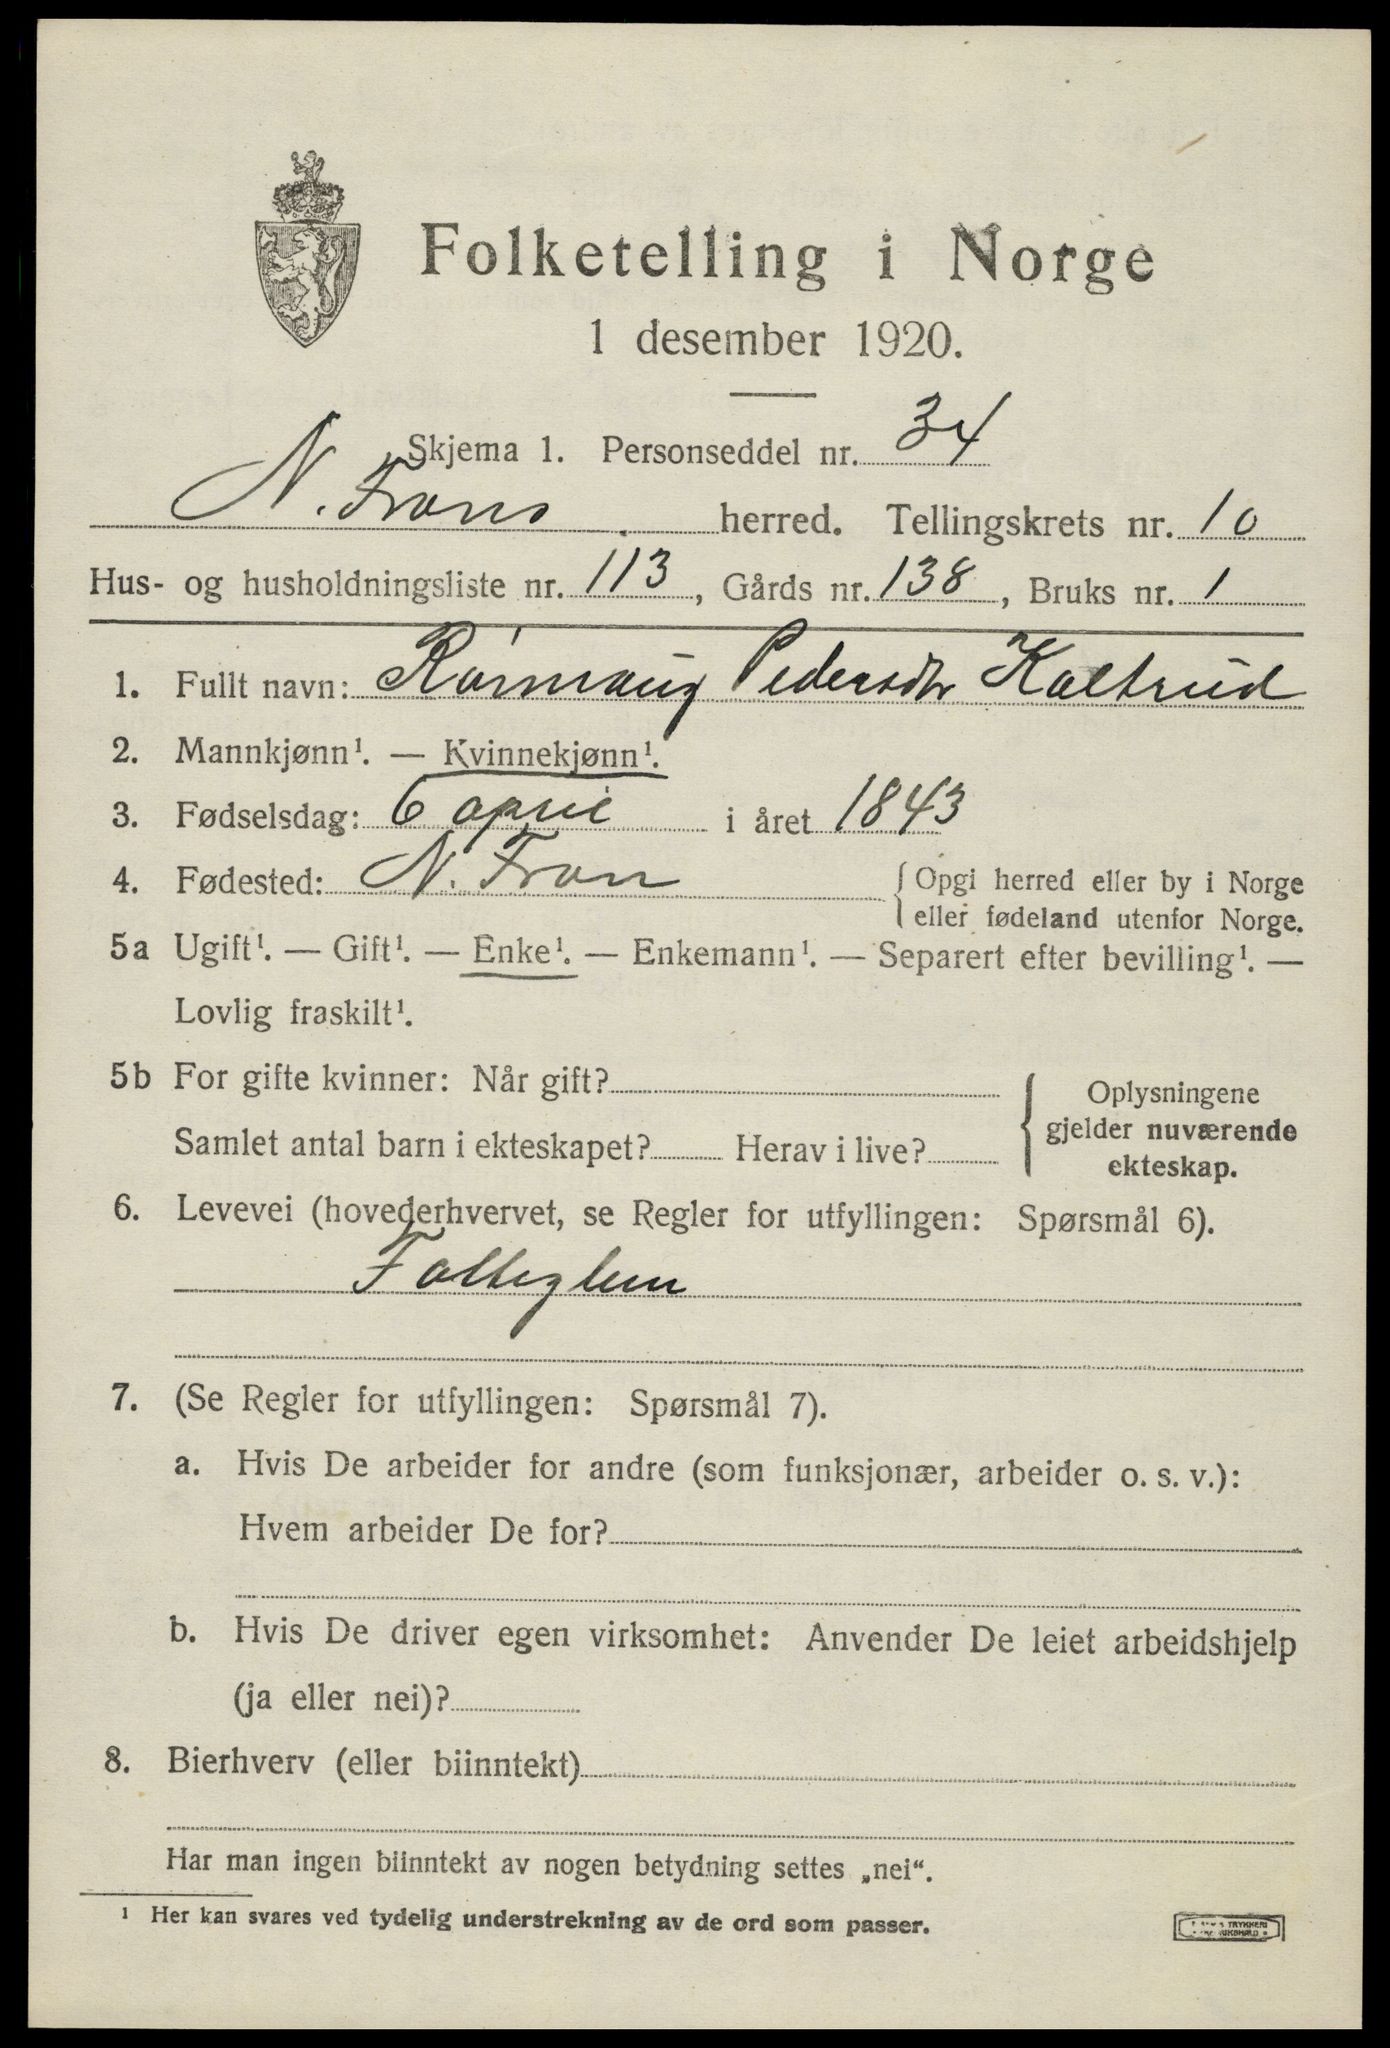 Folketelling i Norge
1 desember 1920.
Skjema 1. Personseddel nr. 34
N. Frons herred. Tellingskrets nr. 10
Hus- og husholdningsliste nr. 113, Gårds nr. 138, Bruks nr. 1
1. Fullt navn: Rønnaug Pedersdtr Kaltrud
2. Mannkjønn¹. — Kvinnekjønn¹.
3. Fødselsdag: 6 april i året 1843
4. Fødested: N. Fron { Opgi herred eller by i Norge
eller fødeland utenfor Norge.
5a Ugift¹. — Gift¹. — Enke¹. — Enkemann¹. — Separert efter bevilling¹. —
Lovlig fraskilt¹.
5b For gifte kvinner: Når gift?
Samlet antal barn i ekteskapet? Herav i live?
{ Oplysningene
gjelder nuværende
ekteskap.
6. Levevei (hovederhvervet, se Regler for utfyllingen: Spørsmål 6).
7. (Se Regler for utfyllingen: Spørsmål 7).
a. Hvis De arbeider for andre (som funksjonær, arbeider o. s. v.):
Hvem arbeider De for?
b. Hvis De driver egen virksomhet: Anvender De leiet arbeidshjelp
(ja eller nei)?
8. Bierhverv (eller biinntekt)
Har man ingen biinntekt av nogen betydning settes „nei“.
¹ Her kan svares ved tydelig understrekning av de ord som passer.